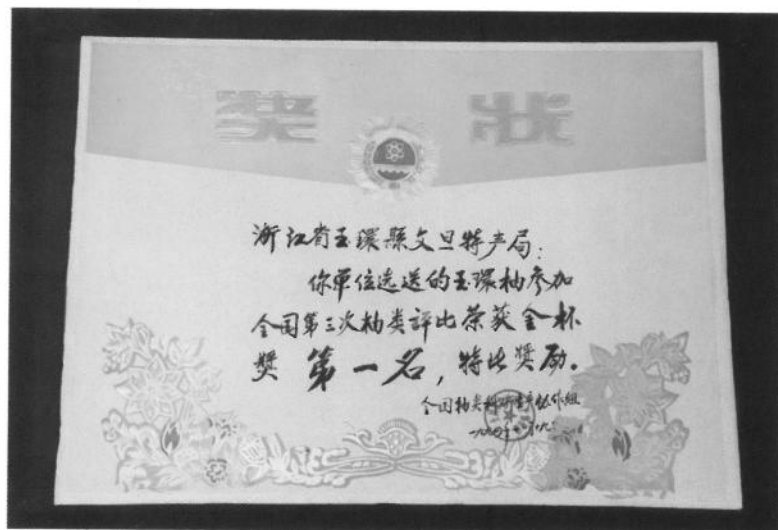 奖 状
浙江省玉環縣文旦特产局：
你单位选送的玉環柚参加
全国第三次柚类評比荣获金杯
奬 第一名，特此奬励。
全国柚类科研生产协作组